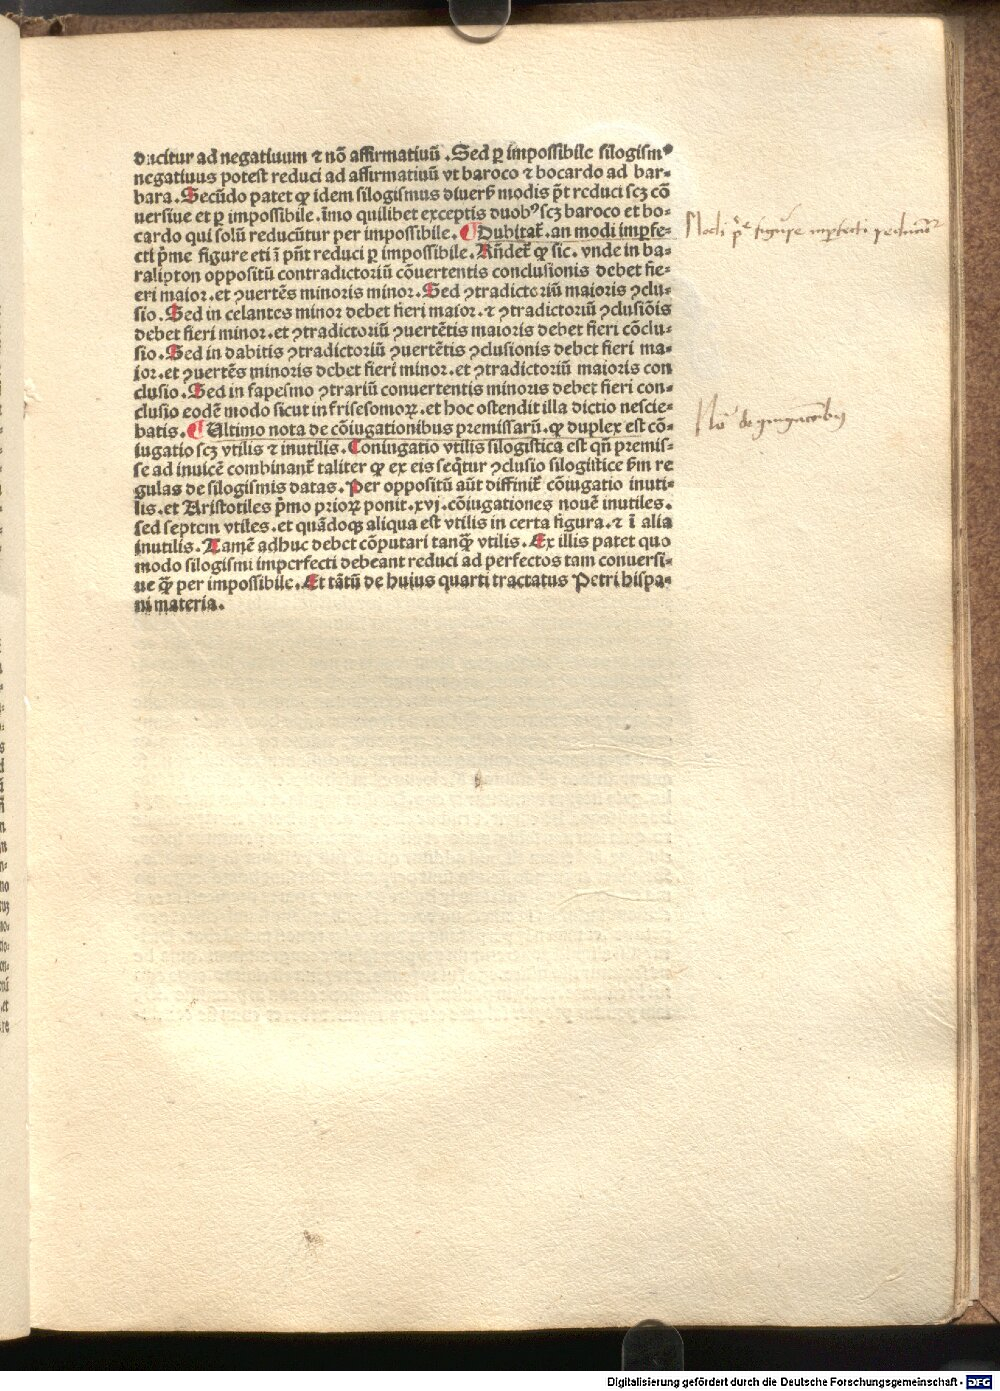 ducitur ad negatiuum ⁊ nō affirmatiuū .Sed ꝑ impossibile silogismꝰ
negatiuus potest reduci ad affirmatiuū vt baroco ⁊ bocardo ad bar-
bara .Secūdo patet ꝙ idem silogismus diuersꝭ modis pn̄t reduci scꝫ cō
uersiue et ꝑ impossibile .īmo quilibet exceptis duobꝰ scꝫ baroco et bo-
cardo qui solū reducūtur per impossibile. ¶ Dubitat᷑ .an modi impfe-
cti pͥme figure eti ī pn̄t reduci ꝑ impossibile .Rn̄det᷑ ꝙ sic. vnde in ba-
ralipton oppositū contradictoriū cōuertentis conclusionis debet fie-
eri maior .et ꝯuertēs minoris minor .Sed ꝯtradictoriū maioris ꝯclu-
sio .Sed in celantes minor debet fieri maior .⁊ ꝯtradictoriū ꝯclusiōis
debet fieri minor .et ꝯtradictoriū ꝯuertētis maioris debet fieri cōclu-
sio .Sed in dabitis ꝯtradictoriū ꝯuertētis ꝯclusionis debet fieri ma-
ior .et ꝯuertēs minoris debet fieri minor .et ꝯtradictoriū maioris con
clusio .Sed in fapesmo ꝯtrariū conuertentis minorus debet fieri con-
clusio eodē modo sicut in frisesomoꝝ .et hoc ostendit illa dictio nescie-
batis. ¶ Ultimo nota de cōiugationibus premissarū .ꝙ duplex est cō-
iugatio scꝫ vtilis ⁊ inutilis .Coniugatio vtilis silogistica est qn̄ premis-
se ad inuicē combinant᷑ taliter ꝙ ex eis seqͥtur ꝯclusio silogistice ẜm re
gulas de silogismis datas .Per oppositū aūt diffinit᷑ cōiugatio inuti-
lis .et Aristotiles pͥmo prioꝝ ponit .xvj. cōiugationes nouē inutiles .
sed septem vtiles .et quādoqꝫ aliqua est vtilis in certa figura .⁊ ī alia
inutilis .Tamē adhuc debet cōputari tanqͣ̄ vtilis .Ex illis patet quo
modo silogismi imperfecti debeant reduci ad perfectos tam conuersi-
ue qͣ̄ per impossibile .Et tātū de huius quarti tractatus Petri hispa-
ni materia .
Modi pͤ figure imperfecti
Digitalisierung gefördert durch die Deutsche Forschungsgemeinschaft - DFG